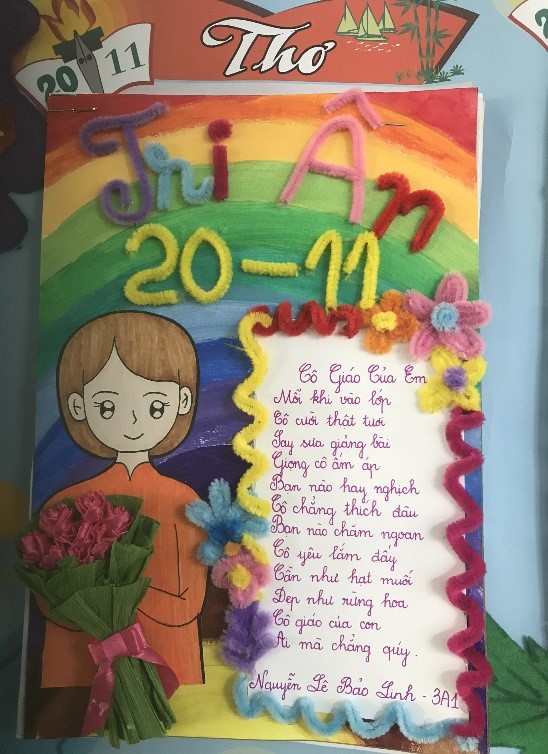 20 11
Thơ
Tri Ân
20-11
Cô Giáo Của Em
Mỗi khi vào lớp
Cô cười thật tươi
Say sưa giảng bài
Giọng cô ấm áp
Bạn nào hay nghịch
Cô chẳng thích đâu
Bạn nào chăm ngoan
Cô yêu lắm đấy
Cần như hạt muối
Đẹp như rừng hoa
Cô giáo của con
Ai mà chẳng quý.
Nguyễn Lê Bảo Linh - 3A1